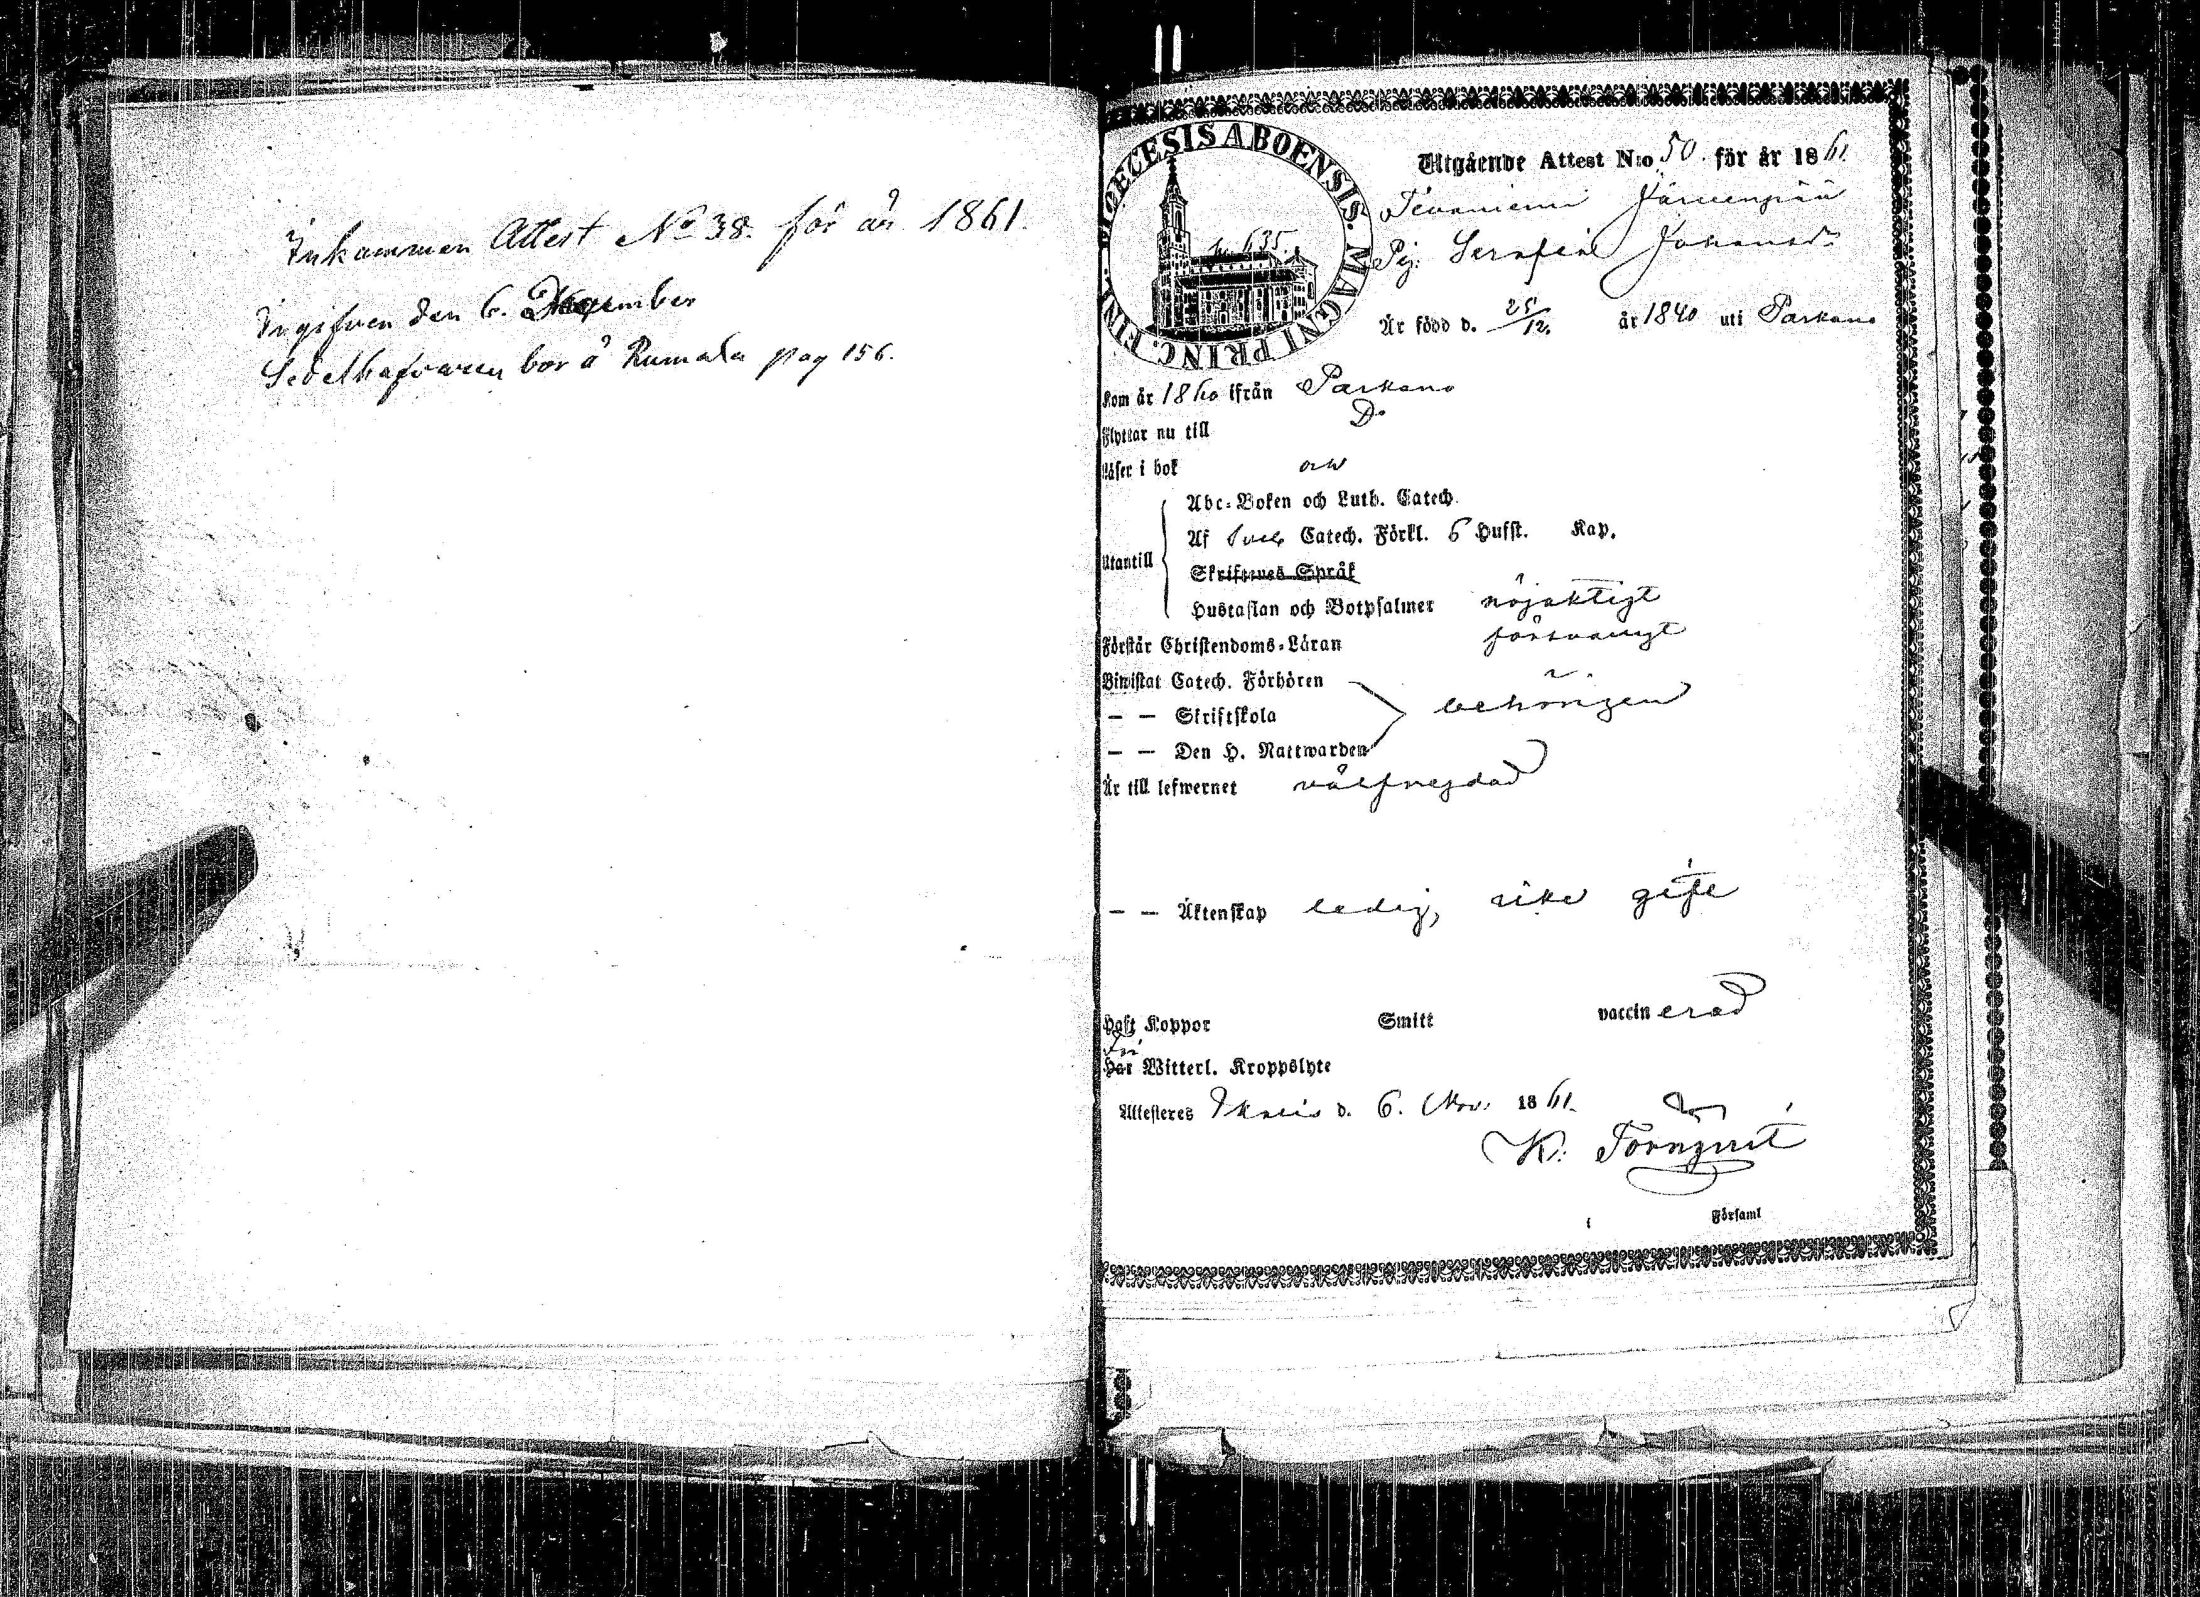 Inkommen Attest No 38. för år 1861.
Ingifven den 6. December
Sedelhafvaren bor å Rumala pag 156.
DIOECESIS ABOENSIS. MAGNI PRINC. FINL.
635.
Utgående Attest N:o 50. för år 1861.
Tevaniemi Järvenpää
Pig. Serafina Johansdr
Är född d. 25/12. år 1840 uti Parkano
Kom år 1860 ifrån Parkano
Flyttar nu till Do
Läser i bok
Abc-Boken och Luth. Catech.
Af Catech. Förkl. 6 Hufst. Kap.
Utantill
Skriftenes Språk
Hustaflan och Botpsalmer nöjaktigt
Förstår Christendoms-Läran försvarligt
Biwistat Catech. Förhören
— — Skriftskola behörigen
— — Den H. Nattwarden
Är till lefwernet välfrejdad
— — Äktenskap ledig, icke gift
Haft Koppor Smitt vaccinerad
Fri
Har Witterl. Kroppslyte
Attesteres Ikalis d. 6. Nov. 1861.
K. Törnqvist
i Församl